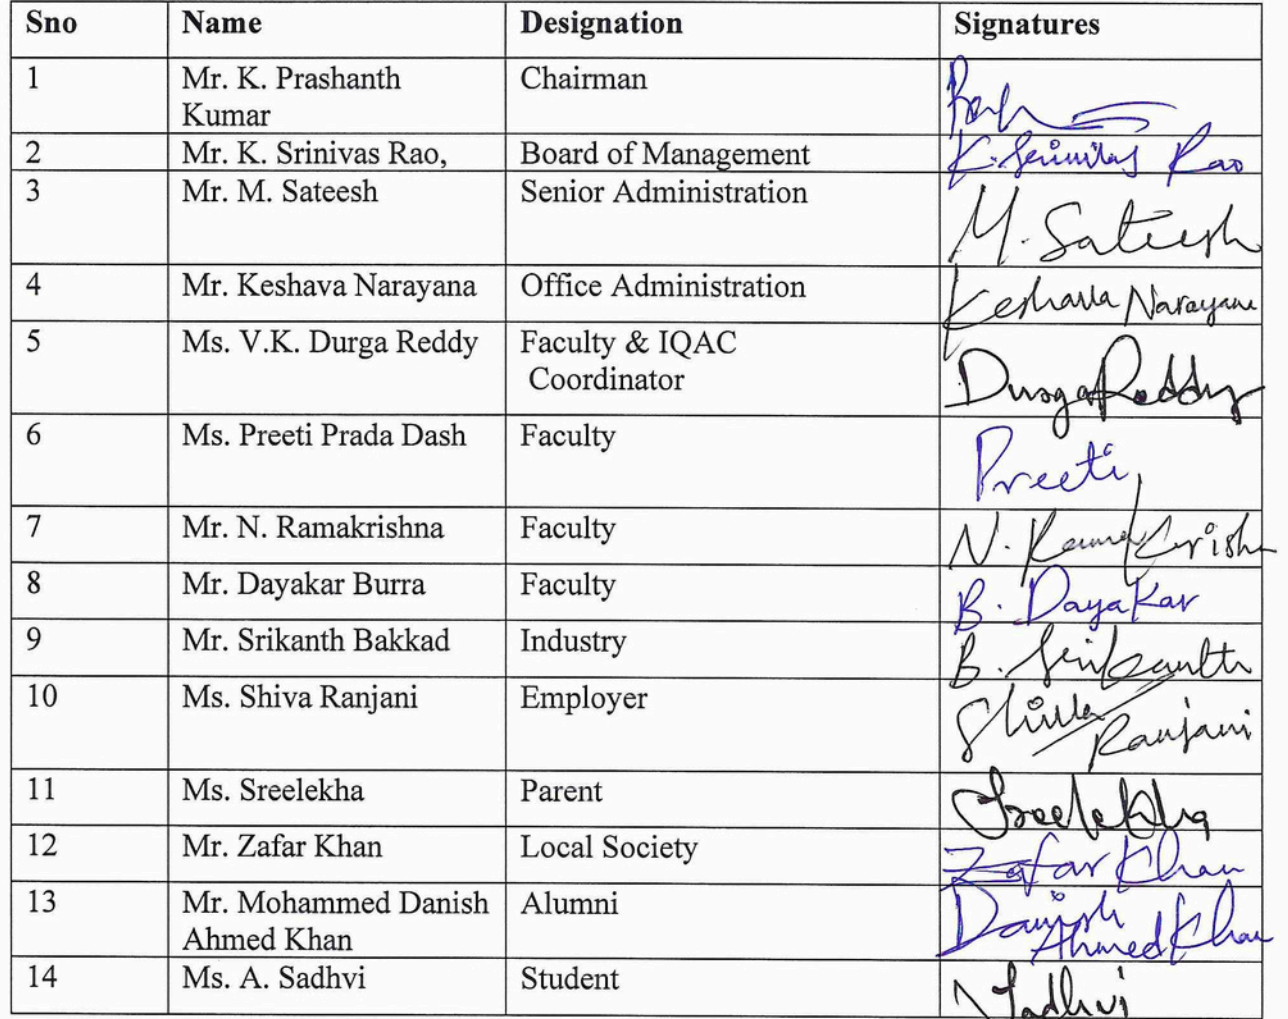 Sno Name Designation Signatures
1 Mr. K. Prashanth Chairman
Kumar
2 Mr. K. Srinivas Rao, Board of Management K. Srinivas Rao
3 Mr. M. Sateesh Senior Administration M. Sateesh
4 Mr. Keshava Narayana Office Administration Keshava Narayana
5 Ms. V.K. Durga Reddy Faculty & IQAC Durga Reddy
Coordinator
6 Ms. Preeti Prada Dash Faculty Preeti
7 Mr. N. Ramakrishna Faculty N. Rama Krishna
8 Mr. Dayakar Burra Faculty B. Dayakar
9 Mr. Srikanth Bakkad Industry B. Srikanth
10 Ms. Shiva Ranjani Employer Shiva
Ranjani
11 Ms. Sreelekha Parent Sreelekha
12 Mr. Zafar Khan Local Society Zafar Khan
13 Mr. Mohammed Danish Alumni Danish
Ahmed Khan Ahmed Khan
14 Ms. A. Sadhvi Student Sadhvi